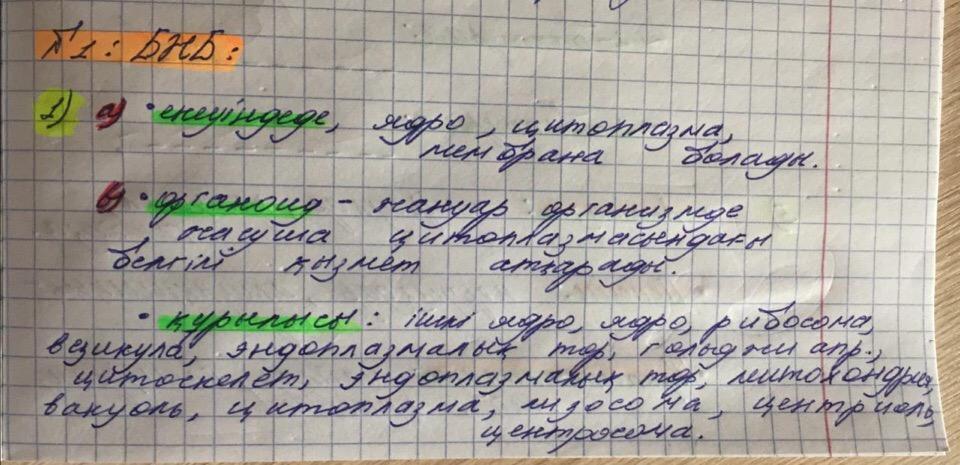 №1: БНБ:
1) а) • екеуіндеде, ядро, цитоплазма,
мембрана болады.
в) • органоид - жануар организмде
жасуша цитоплазмасындағы
белгілі қызмет атқарады.
• құрылысы: ішкі ядро, ядро, рибосома,
везикула, эндоплазмалық тор, гольджи апр.,
цитоскелет, эндоплазмалық тор, митохондрия,
вакуоль, цитоплазма, лизосома, центриоль,
центросома.